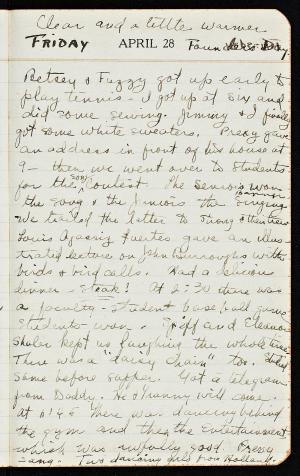 Clear and a little warmer
FRIDAY APRIL 28 Founders Day
Betsey & Fuzzy got up early to
play tennis - I got up at six and
did some sewing. Jimmy & I finally
got some white sweaters. Prexy gave
an address in front of his house at
9 - then we went over to Students
for the song Contest. The seniors won
the song & the Juniors the singing
We trailed the latter to Strong & then
Louis Agassiz Fuertes gave an illus-
trated lecture on John Burroughs with
birds & bird calls. Had a delicious
dinner - steak! At 2:30 there was
a faculty - student baseball game
students won. and Eleanor
kept us laughing the whole time.
There was a "daisy chain" too. Studied
some before supper. Got a telegram
from Daddy. He & will come
at 6:45 There was dancing behind
the gym and then the Entertainment
which was awfully good. Prexy
sang. Two dancing girls from